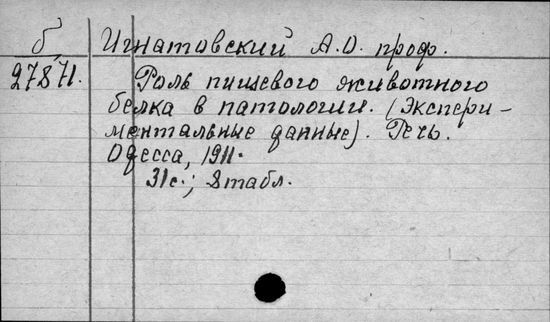 б Игнатовский А.О. проф.
27871. Роль пищевого животного
белка в патологии. (Экспери-
ментальные данные). Речь.
Одесса, 1911.
31с.; 8 табл.